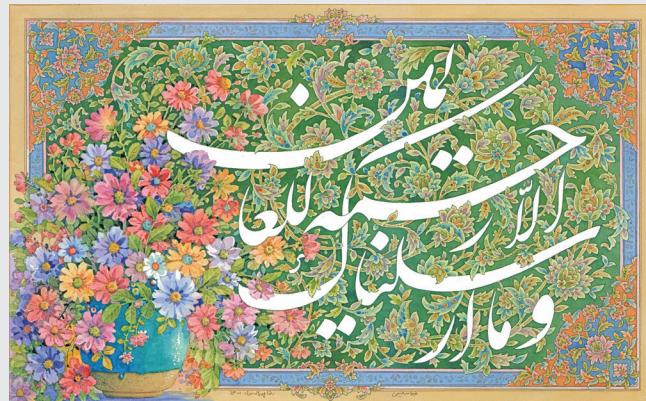 و ما ارسلناک
الّا رحمة
للعالمین